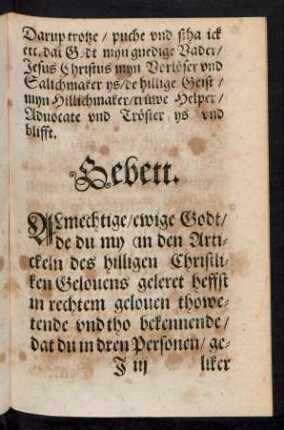 Darup trotze / puche vnd stha ick
etc. dat Godt myn gnedige Vader /
Jesus Christus myn Vorlöser vnd
Salichmaker ys / de hillige Geist /
myn Hillichmaker / trüwe Helper /
Aduocate vnd Tröster / ys vnd
blifft.
Gebett.
ALmechtige / ewige Godt /
de du my an den Arti-
ckeln des hilligen Christli-
ken Gelouens geleret heffst
in rechtem gelouen thowe-
tende vnd tho bekennende /
dat du in dren Personen / ge-
J iij liker